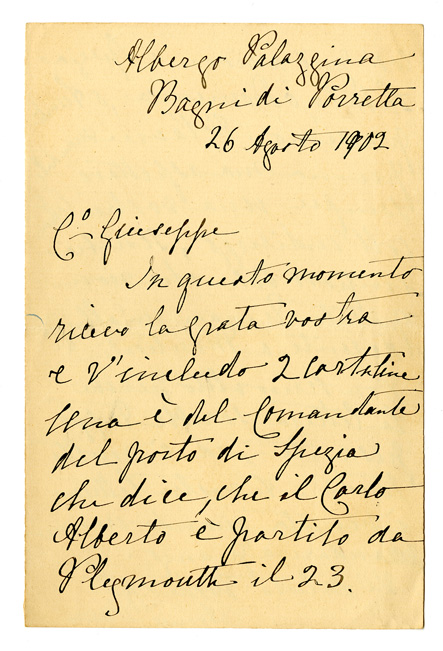 Albergo Palazzina
Bagni di Porretta
26 Agosto 1902
Co Giuseppe
In questo momento
ricevo la grata vostra
e V'includo 2 cartoline
Una è del Comandante
del porto di Spezia
che dice, che il Carlo
Alberto è partito da
Plymouth il 23.